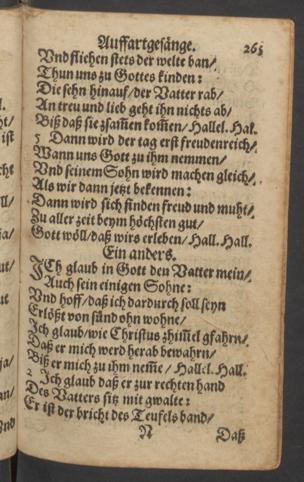 Auffartgesänge. 265
Vnd fliehen stets der welte ban/
Thun uns zu Gottes kinden:
Die sehn hinauf/der Vatter rab/
An treu und lieb geht ihn nichts ab/
Biß daß sie zsam̃en kom̃en/Hallel. Hal.
5 Dann wird der tag erst freudenreich/
Wann uns Gott zu ihm nemmen/
Vnd seinem Sohn wird machen gleich/
Als wir dann jetzt bekennen:
Dann wird sich finden freud und muht/
Zu aller zeit beym höchsten gut/
Gott wöll/daß wirs erleben/Hall. Hall.
Ein anders.
JCh glaub in Gott den Vatter mein/
Auch sein einigen Sohne:
Vnd hoff/daß ich dardurch soll seyn
Erlößt von sünd ohn wohne/
Jch glaub/wie Christus zhim̃el gfahrn/
Daß er mich werd herab bewahrn/
Biß er mich zu ihm nem̃e/Hallel. Hall.
2 Jch glaub daß er zur rechten hand
Des Vatters sitz mit gwalte:
Er ist der bricht des Teufels band/
N Daß